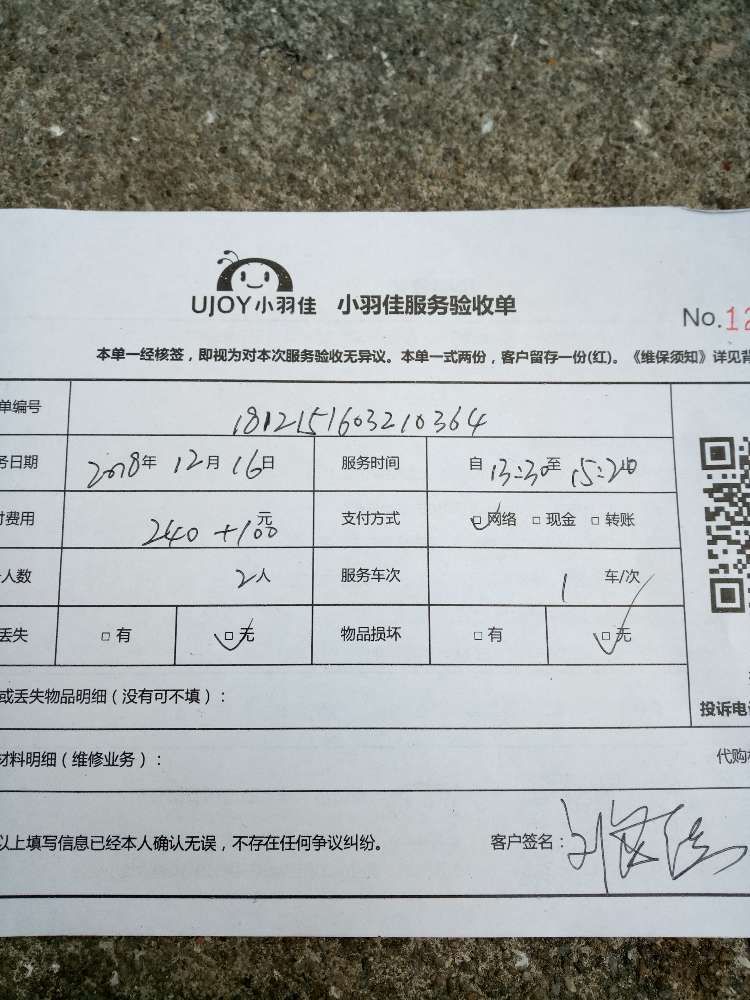 UJOY小羽佳 小羽佳服务验收单
No.12
本单一经核签，即视为对本次服务验收无异议。本单一式两份，客户留存一份(红)。《维保须知》详见背
单编号 1812151603210364
务日期 2018年 12月 16日 服务时间 自 13:30 至 15:20 止
付费用 240+100元 支付方式 ☑网络 □现金 □转账
人数 2人 服务车次 1 车/次
丢失 □有 ☑无 物品损坏 □有 ☑无
或丢失物品明细（没有可不填）：
投诉电
材料明细（维修业务）： 代购
以上填写信息已经本人确认无误，不存在任何争议纠纷。 客户签名：